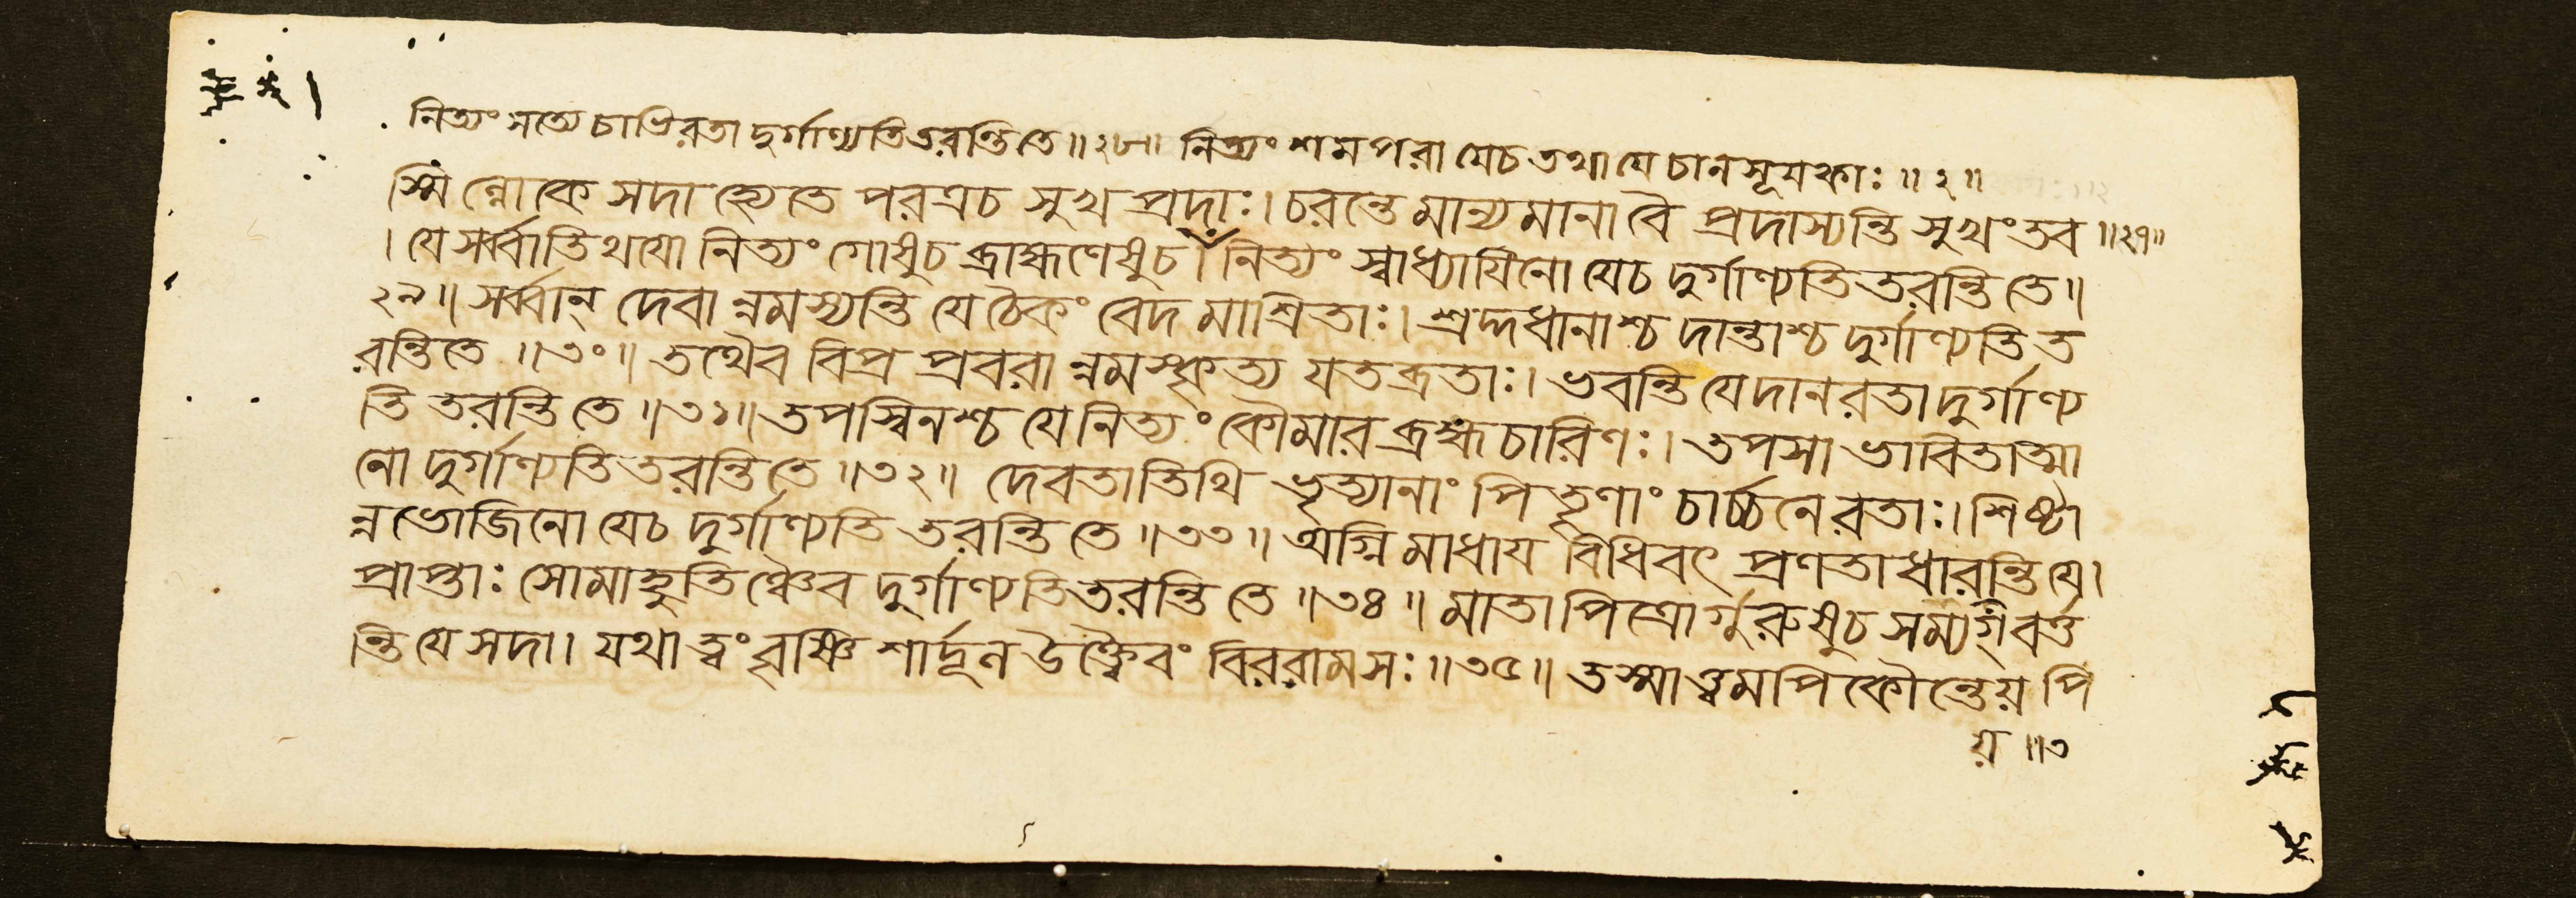 নিত্যং সত্যে চাভিরতা দুর্গাণ্যতিতরন্তি তে ॥ ২৮ ॥ নিত্যং শমপরা যে চ তথা যে চানসূযকাঃ ॥ ২ ॥
স্মিঁল্লোকে সদা হ্যেতে পরত্র চ সুখপ্রদাঃ । চরন্তে মান্যমানা বৈ প্রদাস্যন্তি সুখং তব ॥ ২৭ ॥
। যে সর্ব্বাতিথযো নিত্যং গোষু চ ব্রাহ্মণেষু চ । নিত্যং স্বাধ্যাযিনো যে চ দুর্গাণ্যতিতরন্তি তে ॥
২৯ ॥ সর্ব্বান্ দেবান্নমস্যন্তি যে চৈকং বেদমাাশ্রিতাঃ । শ্রদ্দধানাশ্চ দান্তাশ্চ দুর্গাণ্যতিত
রন্তি তে ॥ ৩০ ॥ তথৈব বিপ্রপ্রবরান্নমস্কৃত্য যতব্রতাঃ । ভবন্তি যে দানরতা দুর্গাণ্য
তিতরন্তি তে ॥ ৩১ ॥ তপস্বিনশ্চ যে নিত্যং কৌমারব্রহ্মচারিণঃ । তপসা ভাবিতাত্মা
নো দুর্গাণ্যতিতরন্তি তে ॥ ৩২ ॥ দেবতাতিথিভৃত্যানাং পিতৄণাং চার্চ্চনে রতাঃ । শিষ্টা
ন্নভোজিনো যে চ দুর্গাণ্যতিতরন্তি তে ॥ ৩৩ ॥ অগ্নিমাধায বিধিবৎ প্রণতা ধারন্তি যে ।
প্রাপ্তাঃ সোমাহুতিঞ্চৈব দুর্গাণ্যতিতরন্তি তে ॥ ৩৪ ॥ মাতাপিত্রোর্গুরুষু চ সম্যগ্বর্ত্ত
ন্তি যে সদা । যথা ত্বং বৃষ্ণিশার্দূল উক্ত্বৈবং বিররাম সঃ ॥ ৩৫ ॥ তস্মাত্ত্বমপি কৌন্তেয় পি
য় ॥ ৩